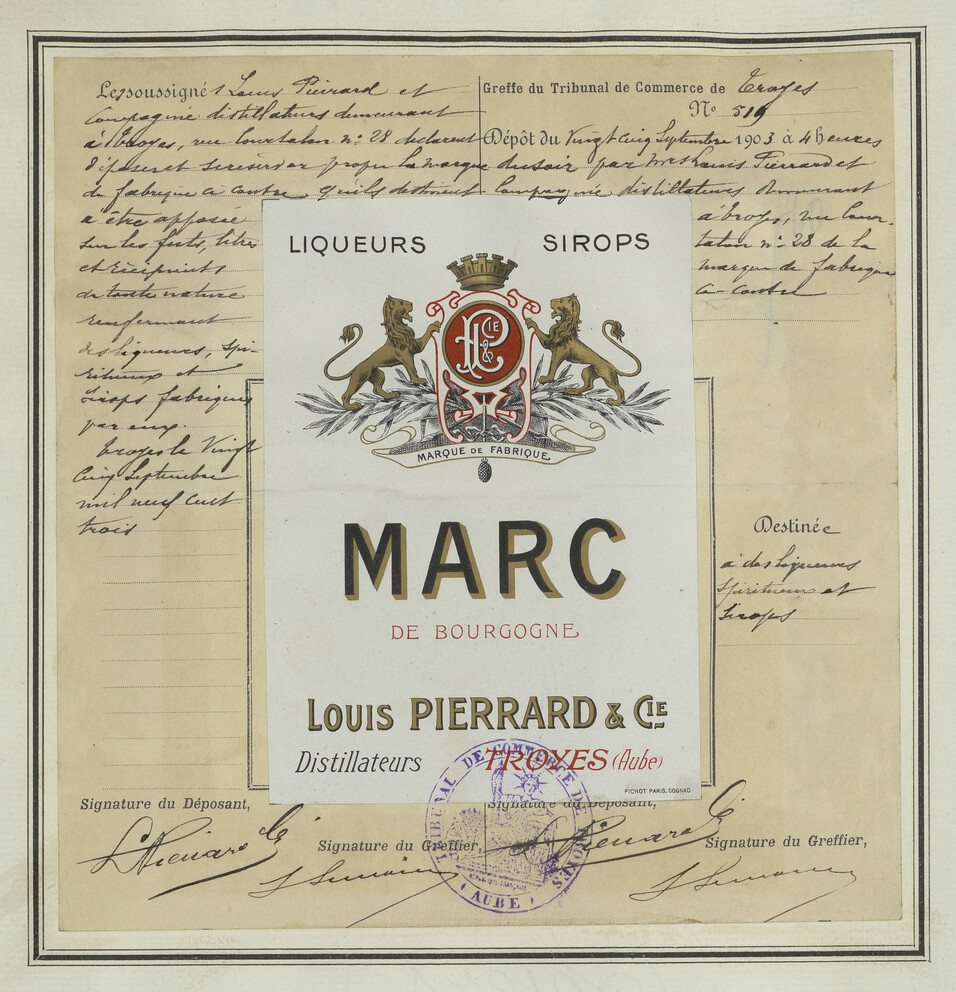 Les soussignés Louis Pierrard et
Compagnie distillateurs demeurant
à Troyes, rue Courtalon n° 28 déclarent
déposer et se réserver propre la marque
de fabrique ci contre qu'ils destinent
a être apposée
sur les futs, litres
et récipients
de toute nature
renfermant
des liqueurs, spi-
ritueux et
sirops fabriqués
par eux.
Troyes le Vingt
Cinq Septembre
mil neuf cent
trois
Greffe du Tribunal de Commerce de Troyes
N° 519
Dépôt du Vingt Cinq Septembre 1903 à 4 heures
du soir par Mrs Louis Pierrard et
Compagnie distillateurs demeurant
à Troyes, rue Cour-
talon n° 28 de la
marque de fabrique
ci-contre
LIQUEURS SIROPS
P & CIE
MARQUE DE FABRIQUE
MARC
DE BOURGOGNE
LOUIS PIERRARD & CIE
Distillateurs TROYES (Aube)
PICHOT PARIS. COGNAC
Destinée
à des liqueurs
spiritueux et
sirops
Signature du Déposant,
Signature du Greffier,
Signature du Déposant,
Signature du Greffier,
L Pierrard Cie
L Pierrard Cie
TRIBUNAL DE COMMERCE DE TROYES
(AUBE)